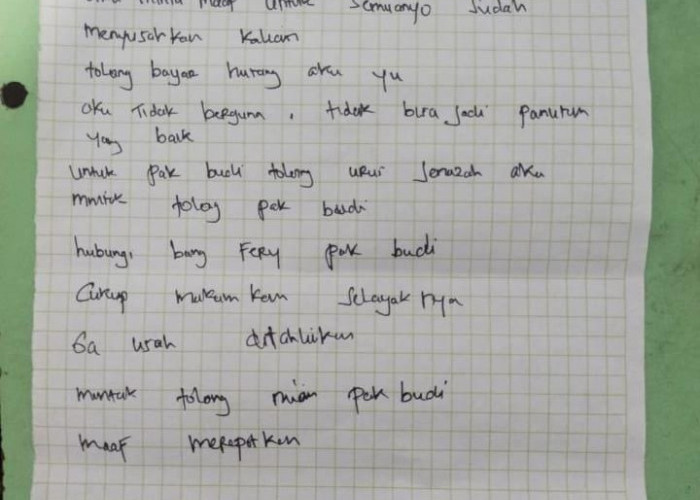 maaf untuk semuanyo sudah
menyusahkan kalian
tolong bayar hutang aku yu
aku Tidak berguna, tidak bisa jadi panutan
yang baik
untuk pak budi tolong urus jenazah aku
tolog pak budi
hubungi bang Fery pak budi
Cukup makum kan selayak nya
Ga usah
tolong pak budi
maaf merepotkan